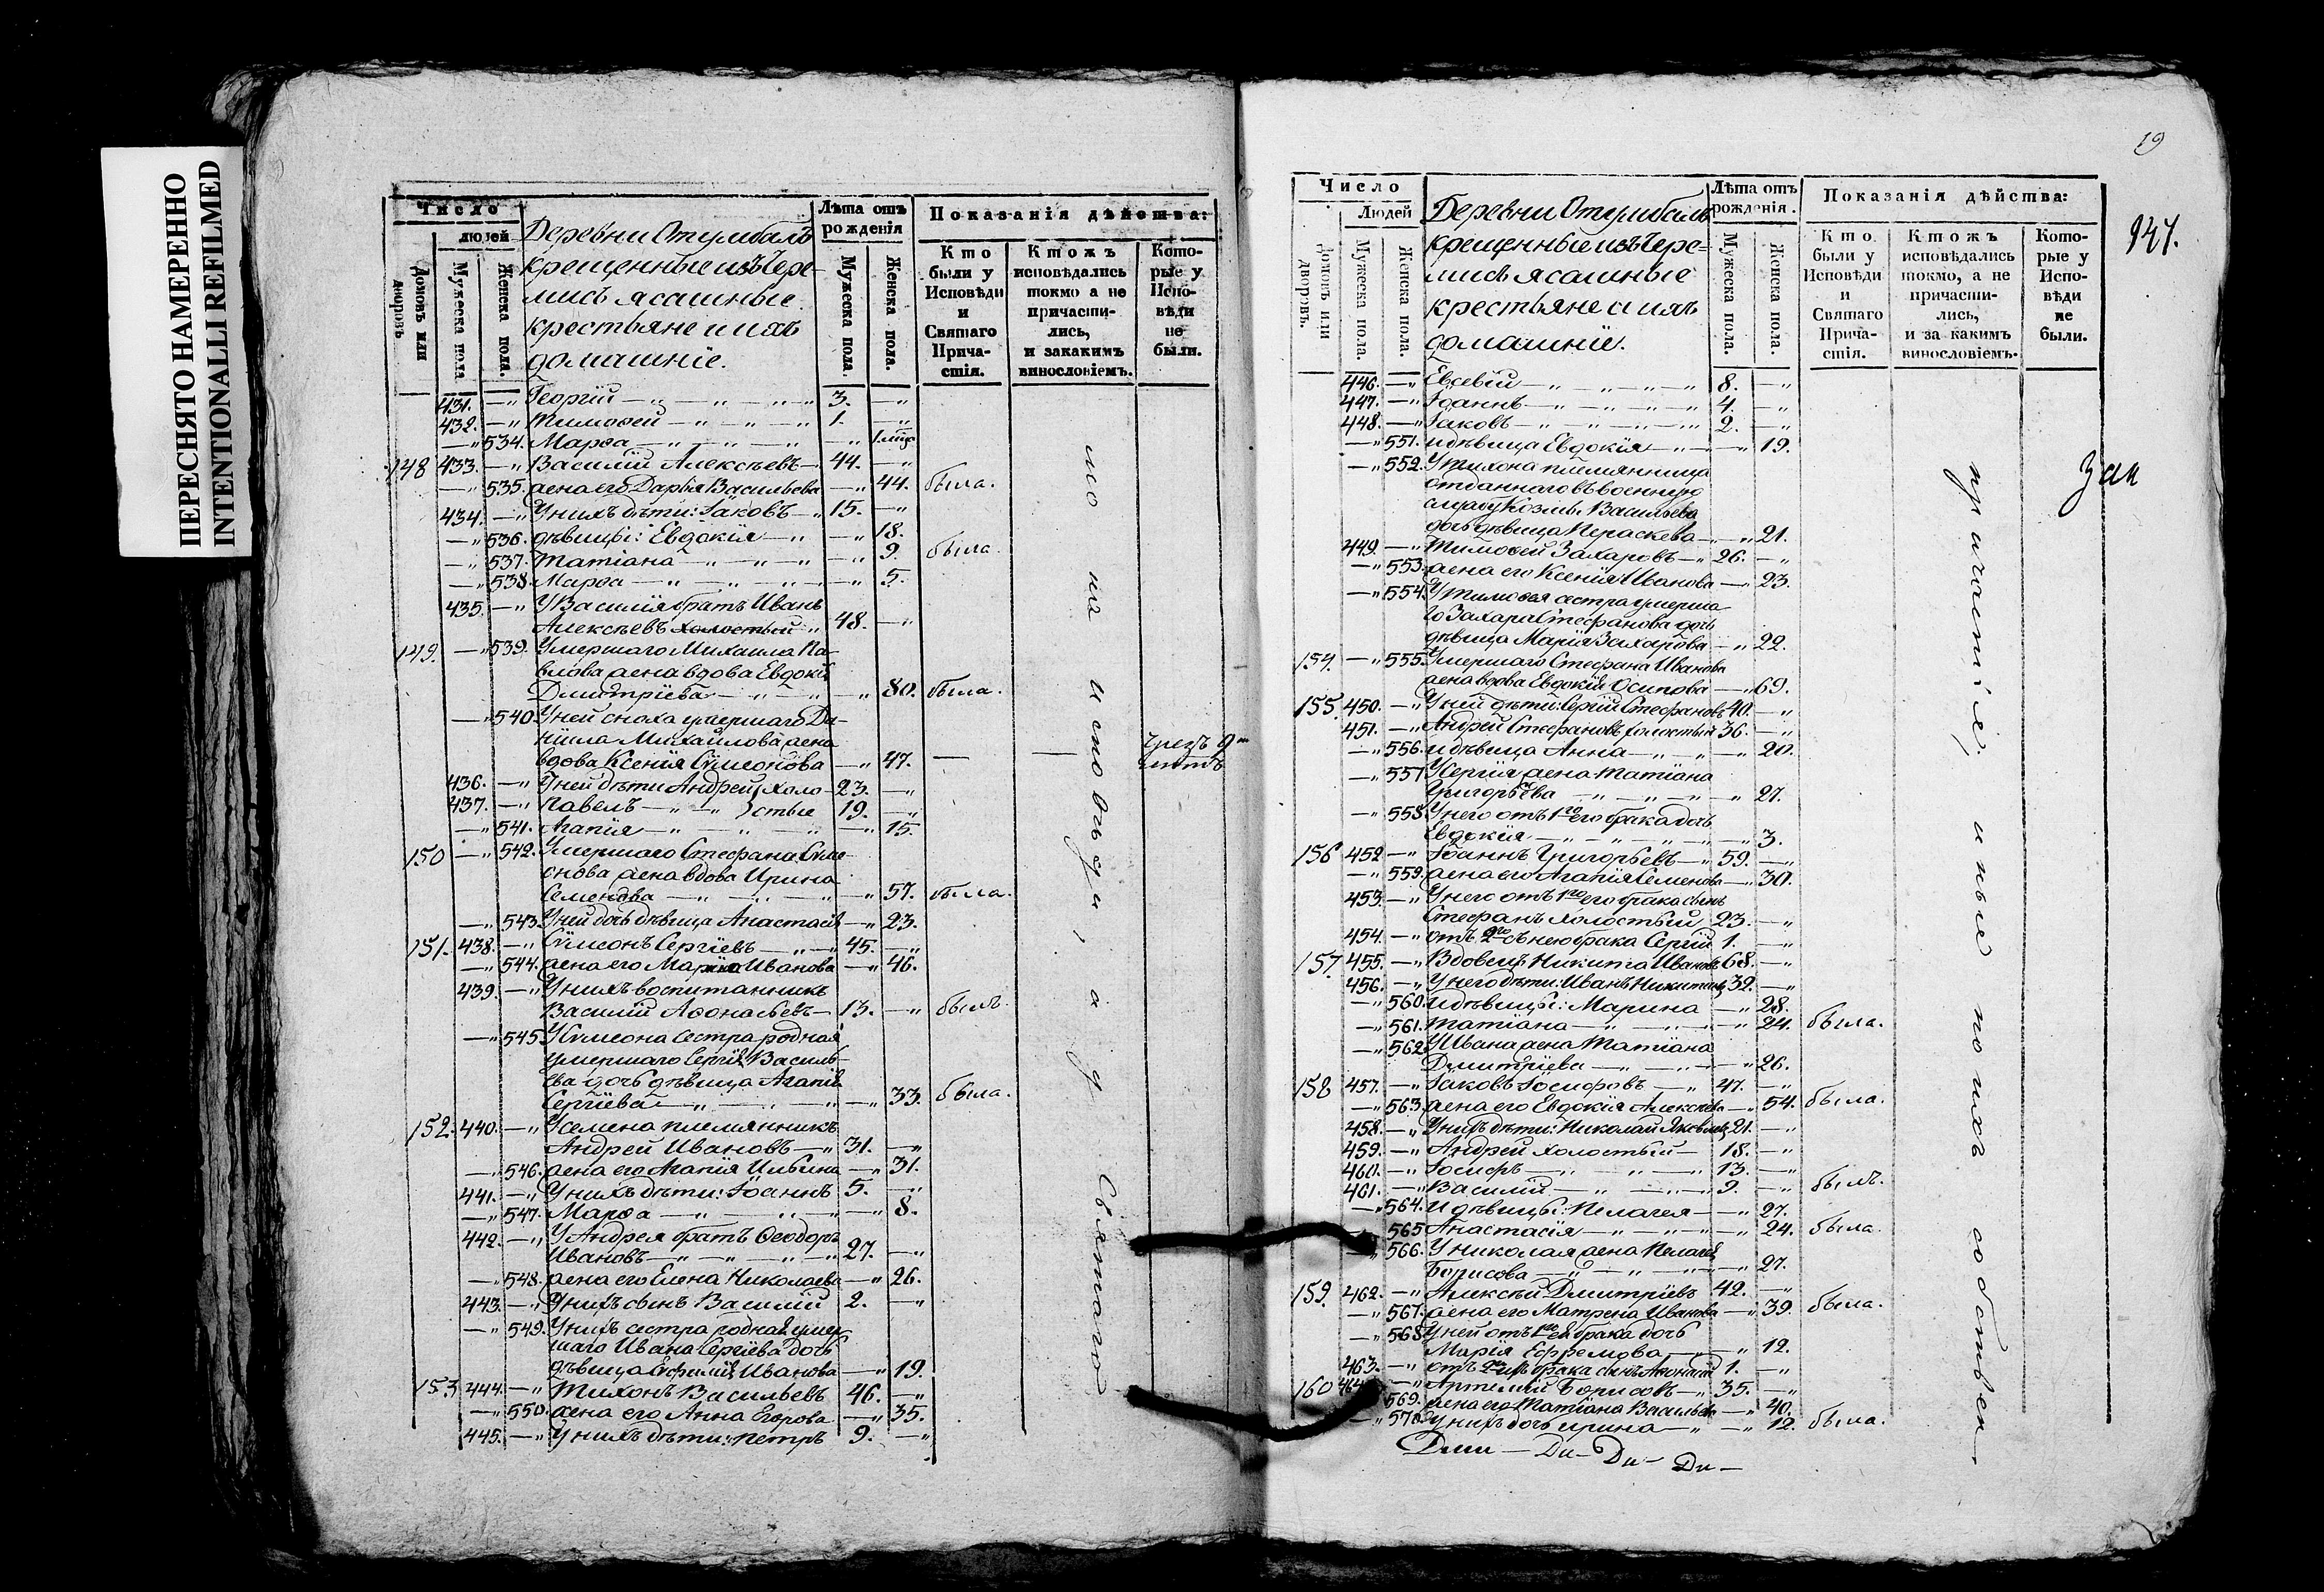 ПЕРЕСНЯТО НАМЕРЕННО
INTENTIONALLI REFILMED
Число
людей
Домовъ или дворовъ
Мужеска пола
Женска пола.
Деревни Отумбалъ
крещенные изъ Чере-
мисъ ясашные
крестьяне и ихъ
домашніе.
Лѣта отъ рожденія
Мужеска пола.
Женска пола.
Показанія дѣйства:
Кто были у Исповѣди и Святаго Прича- стія.
Ктожъ исповѣдались токмо а не причасти- лись, и закакимъ винословіемъ.
Кото- рые у Испо- вѣди не были.
431. —„ Георгій —„ —„ 3. —„
432. —„ Тимофей —„ —„ 1. —„
—„ 534. Марѳа —„ —„ —„
148 433. —„ Василій Алексѣевъ —„ 44. —„
—„ 535. жена его Дарья Васильева —„ 44. была.
434. —„ У нихъ дѣти: Іаковъ —„ 15. —„
—„ 536. дѣвицы: Евдокія —„ —„ 18.
—„ 537. Татіана —„ —„ —„ 9. была.
—„ 538. Марѳа —„ —„ —„ 5.
435. —„ У Василія братъ Иванъ
Алексѣевъ холостый „ 48. —„
149. —„ 539. Умершаго Михаила Па-
влова жена вдова Евдокія
Дмитріева —„ —„ —„ 80. была.
—„ 540. У ней сноха умершаго Да-
ніила Михайлова жена
вдова Ксенія Сѵмеонова —„ 47. — —
436. —„ У ней дѣти Андрей } холо- 23. —„
437. —„ Павелъ —„ —„ } стые 19. —„
—„ 541. Агапія —„ —„ —„ 15.
150 —„ 542. Умершаго Стефана Сѵме-
онова жена вдова Ирина
Семенова —„ —„ —„ 57. была.
—„ 543. У ней дочь дѣвица Анастасія —„ 23.
151. 438. —„ Сѵмеонъ Сергіевъ —„ —„ 45. —„
—„ 544. жена его Марія Иванова —„ 46.
439. —„ У нихъ воспитанникъ
Василій Аѳонасьевъ — 13. —„ былъ
—„ 545. У Сѵмеона сестра родная
умершаго Сергія Василь-
ева дочь дѣвица Агапія
Сергіева —„ —„ —„ 33. была.
152. 440. —„ У Семена племянникъ
Андрей Ивановъ —„ 31. —„
—„ 546. жена его Агапія Ильина —„ 31.
441. —„ У нихъ дѣти: Іоаннъ 5. —„
—„ 547. Марѳа —„ —„ —„ 8.
442. —„ У Андрея братъ Ѳеодоръ
Ивановъ —„ —„ —„ 27. —„
—„ 548. жена его Елена Николаева —„ 26.
443. —„ У нихъ сынъ Василій 2. —„
—„ 549. У нихъ сестра родная умер
шаго Ивана Сергіева дочь
дѣвица Евфимія Иванова —„ 19.
153 444. —„ Тихонъ Васильевъ 46. —„
—„ 550. жена его Анна Егорова —„ 35.
445. —„ У нихъ дѣти: Петръ 9. —„
то на исповѣди, а у Святаго
19
947.
Число
Людей
Домовъ или дворовъ.
Мужеска пола.
Женска пола.
Деревни Отумбалъ
крещенные изъ Чере-
мисъ ясашные
крестьяне и ихъ
домашніе.
Лѣта отъ рожденія.
Мужеска пола.
Женска пола.
Показанія дѣйства:
Кто были у Исповѣди и Святаго Прича- стія.
Ктожъ исповѣдались токмо, а не причасти- лись, и за какимъ винословіемъ.
Кото- рые у Испо- вѣди не были.
446. —„ Евсевій —„ —„ —„ 8. —„
447. —„ Іоаннъ —„ —„ —„ 4. —„
448. —„ Іаковъ —„ —„ —„ 2. —„
—„ 551. и дѣвица Евдокія —„ —„ 19.
—„ 552. У Тихона племянница
отданнаго въ военную
службу Козмы Васильева
дочь дѣвица Параскева —„ 21.
449. —„ Тимофей Захаровъ —„ 26. —„
—„ 553. жена его Ксенія Иванова —„ 23.
—„ 554. У Тимофея сестра умерша
го Захара Стефанова дочь
дѣвица Марія Захарова —„ 22.
154. —„ 555. Умершаго Стефана Иванова
жена вдова Евдокія Осипова —„ 69.
155. 450. —„ У ней дѣти: Сергій Стефановъ 40. —„
451. —„ Андрей Стефановъ холостый 36. —„
—„ 556. и дѣвица Анна —„ —„ 20.
—„ 557 У Сергія жена Татіана
Григорьева —„ —„ —„ 27.
—„ 558. У него отъ 1го его брака дочь
Евдокія —„ —„ —„ 3.
156 452 —„ Іоаннъ Григорьевъ —„ 59. —„
—„ 559. жена его Агапія Семенова —„ 30.
453. —„ У него отъ 1го его брака сынъ
Стефанъ холостый 23. —„
454. —„ отъ 2го съ нею брака Сергій 1. —„
157. 455. —„ Вдовецъ Никита Ивановъ 68. —„
456. —„ У него дѣти: Иванъ Никитинъ 32. —„
—„ 560. и дѣвицы: Марина —„ 28.
—„ 561. Татіана —„ —„ —„ 24. была.
—„ 562. У Ивана жена Татіана
Дмитріева —„ —„ —„ 26.
158 457. —„ Іаковъ Іосифовъ —„ 47. —„
—„ 563 жена его Евдокія Алексѣева —„ 54. была.
458. —„ У нихъ дѣти: Николай Яковлевъ 21. —„
459. —„ Андрей холостый — 18. —„
460. —„ Іосифъ —„ —„ —„ 13. —„
461. —„ Василій —„ —„ 9. —„ былъ.
—„ 564. и дѣвицы: Пелагея —„ 27.
565 Анастасія —„ —„ —„ 24. была.
566. У Николая жена Пелагея
Борисова —„ —„ —„ 27.
159. 462. —„ Алексѣй Дмитріевъ 42. —„
—„ 567. жена его Матрена Иванова —„ 39. была.
—„ 568. У ней отъ 1го ея брака дочь
Марія Ефремова —„ —„ 12.
463. —„ отъ брака сынъ Аѳонасій 1. —„
160 464 —„ Артемій Борисовъ —„ 35. —„
569. жена его Татіана Васильева —„ 40.
—„ 570. У нихъ дочь Ирина —„ —„ 12. была.
причастіе, иные по ихъ собствен—
Ди— Ди— Ди—